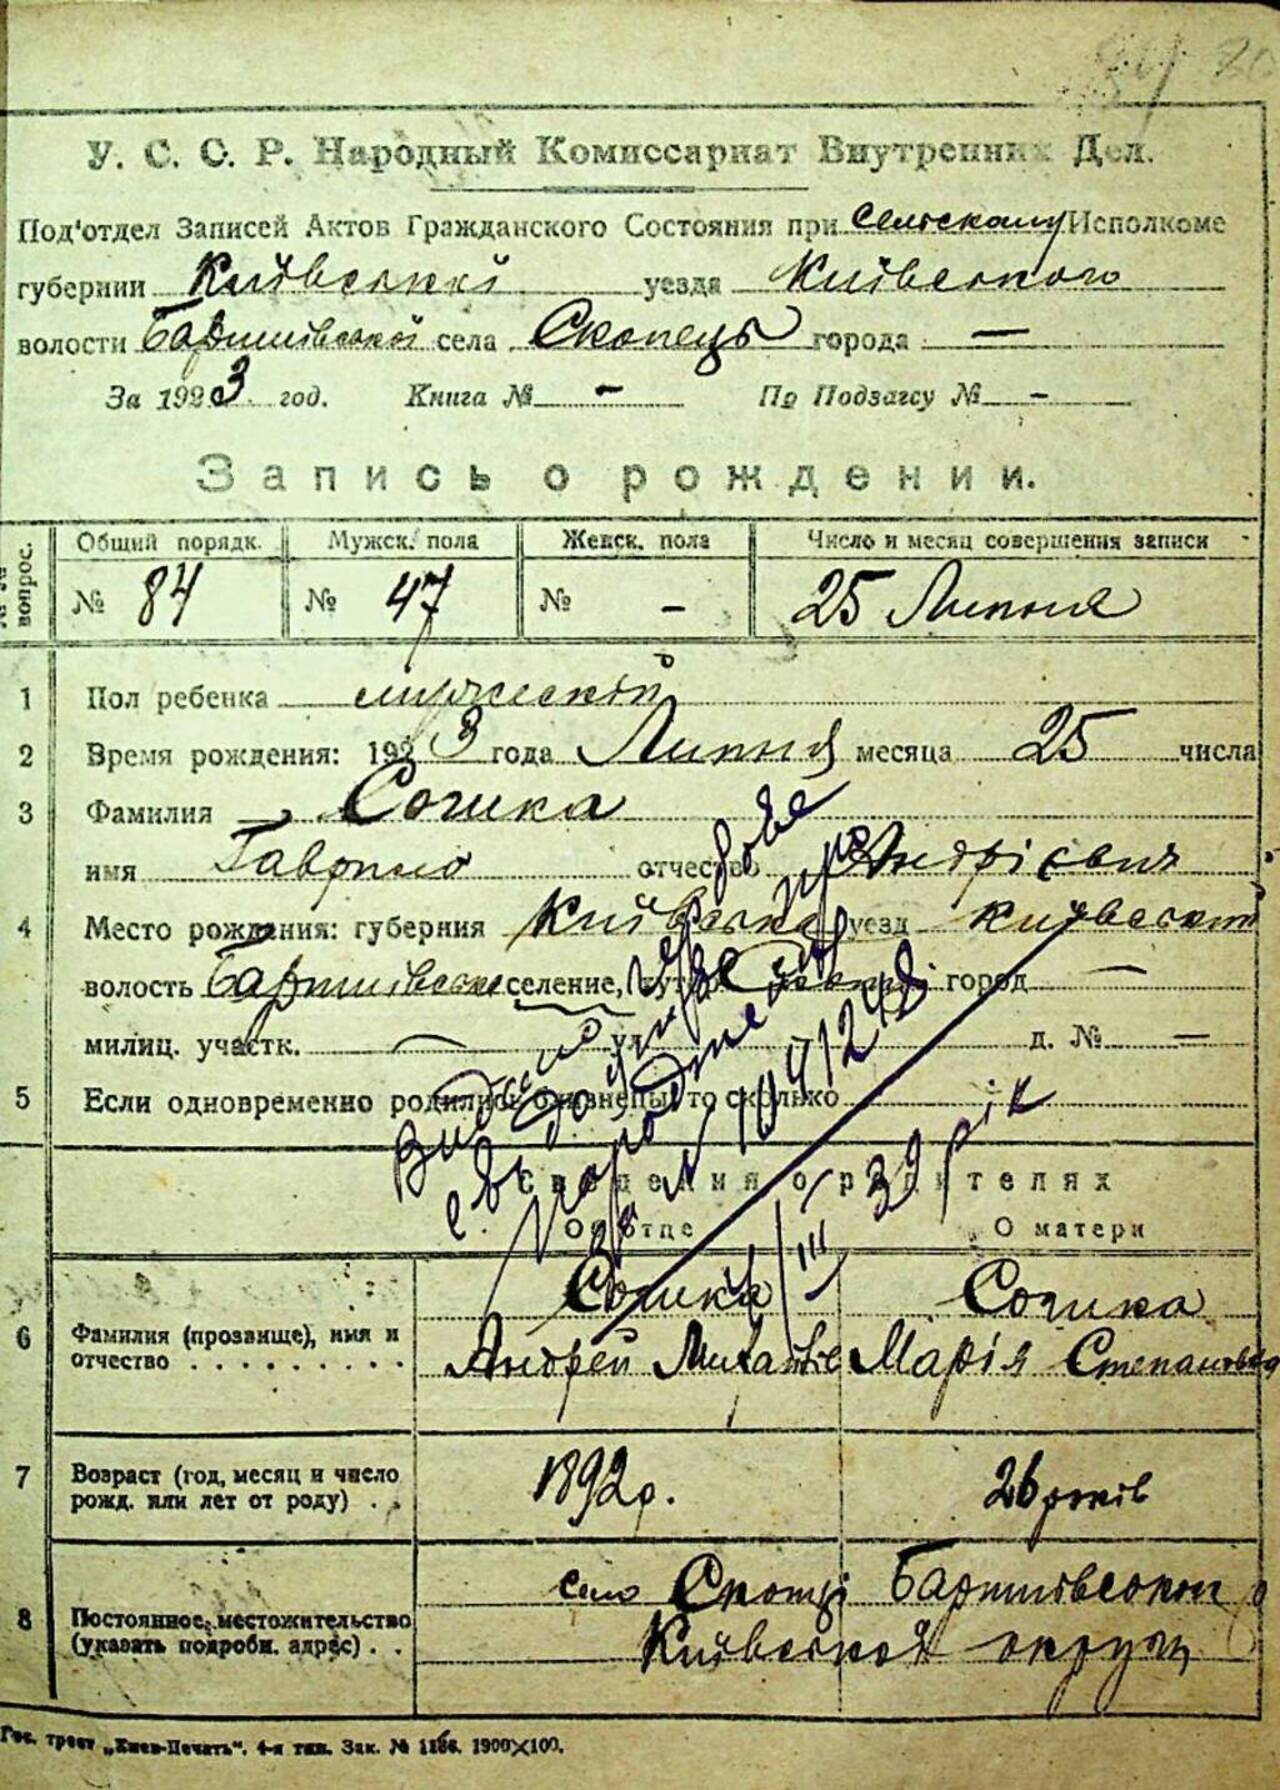 У. С. С. Р. Народный Комиссариат Внутренних Дел.
Под'отдел Записей Актов Гражданского Состояния при Сельском Исполкоме
губернии Київської уезда Київського
волости Баришівської села Скопець города —
За 1923 год. Книга № - По Подзагсу № -
Запись о рождении.
№ № вопрос. Общий порядк. Мужск. пола Женск. пола Число и месяц совершения записи
№ 84 № 47 № - 25 Липня
1 Пол ребенка мужескій
2 Время рождения: 1923 года Липня месяца 25 числа
3 Фамилия Сошка
имя Гаврило отчество Андрієвич
4 Место рождения: губерния Київська уезд Київський
волость Баришівська селение, город —
милиц. участк. — ул. д. № —
5 Если одновременно родились
Видано нове
свідоцтво про
народження
39 рік
Сведения о родителях
Об отце О матери
6 Фамилия (прозвище), имя и отчество Сошка Сошка
Андрей Михайлів Марія Степановна
7 Возраст (год, месяц и число рожд. или лет от роду) 1892 р. 26 років
8 Постоянное местожительство (указать подробн. адрес) село Скопці Баришівського р
Київської округи
Гос. трест „Киев-Печать". 4-я тип. Зак. № 1186. 1900×100.